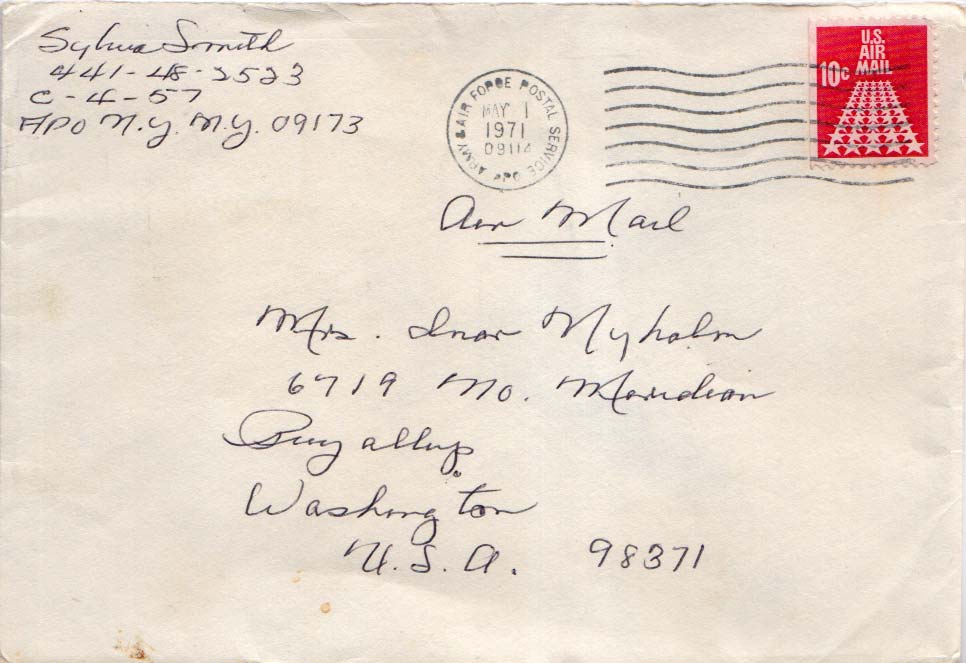 Sylvia Smith
441-48-2523
C-4-57
APO N.Y. N.Y. 09173
ARMY & AIR FORCE POSTAL SERVICE
APO
MAY 1
1971
09114
U.S.
AIR
MAIL
10c
Air Mail
Mrs. Inar Nyholm
6719 No. Meridian
Puyallup
Washington
U.S.A. 98371